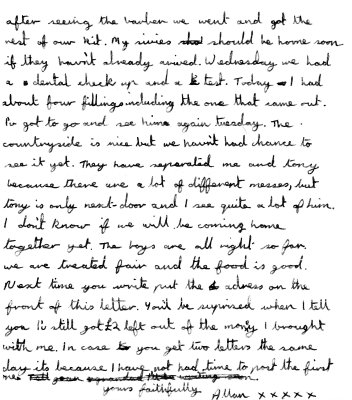 after seeing the barber we went and got the
rest of our kit. My sivies should be home soon
if they havn't already arived. Wednesday we had
a dental check up and a test. Today I had
about four fillings including the one that came out.
I'v got to go and see him again tuesday. The
countryside is nice but we havn't had chance to
see it yet. They have seperated me and tony
because there are a lot of different messes, but
tony is only next-door and I see quite a lot of him.
I don't know if we will be coming home
together yet. The boys are all right so far,
we are treated fair and the food is good.
Next time you write put the adress on the
front of this letter. You'll be suprised when I tell
you I'v still got £2 left out of the mony I brought
with me. In case you get two letters the same
day its because I have not had time to post the first
one.
yours faithfully
Allan x x x x x